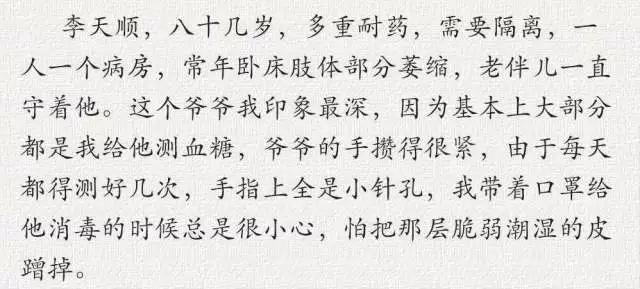 李天顺，八十几岁，多重耐药，需要隔离，一
人一个病房，常年卧床肢体部分萎缩，老伴儿一直
守着他。这个爷爷我印象最深，因为基本上大部分
都是我给他测血糖，爷爷的手攒得很紧，由于每天
都得测好几次，手指上全是小针孔，我带着口罩给
他消毒的时候总是很小心，怕把那层脆弱潮湿的皮
蹭掉。